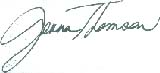 Jenna Thomson